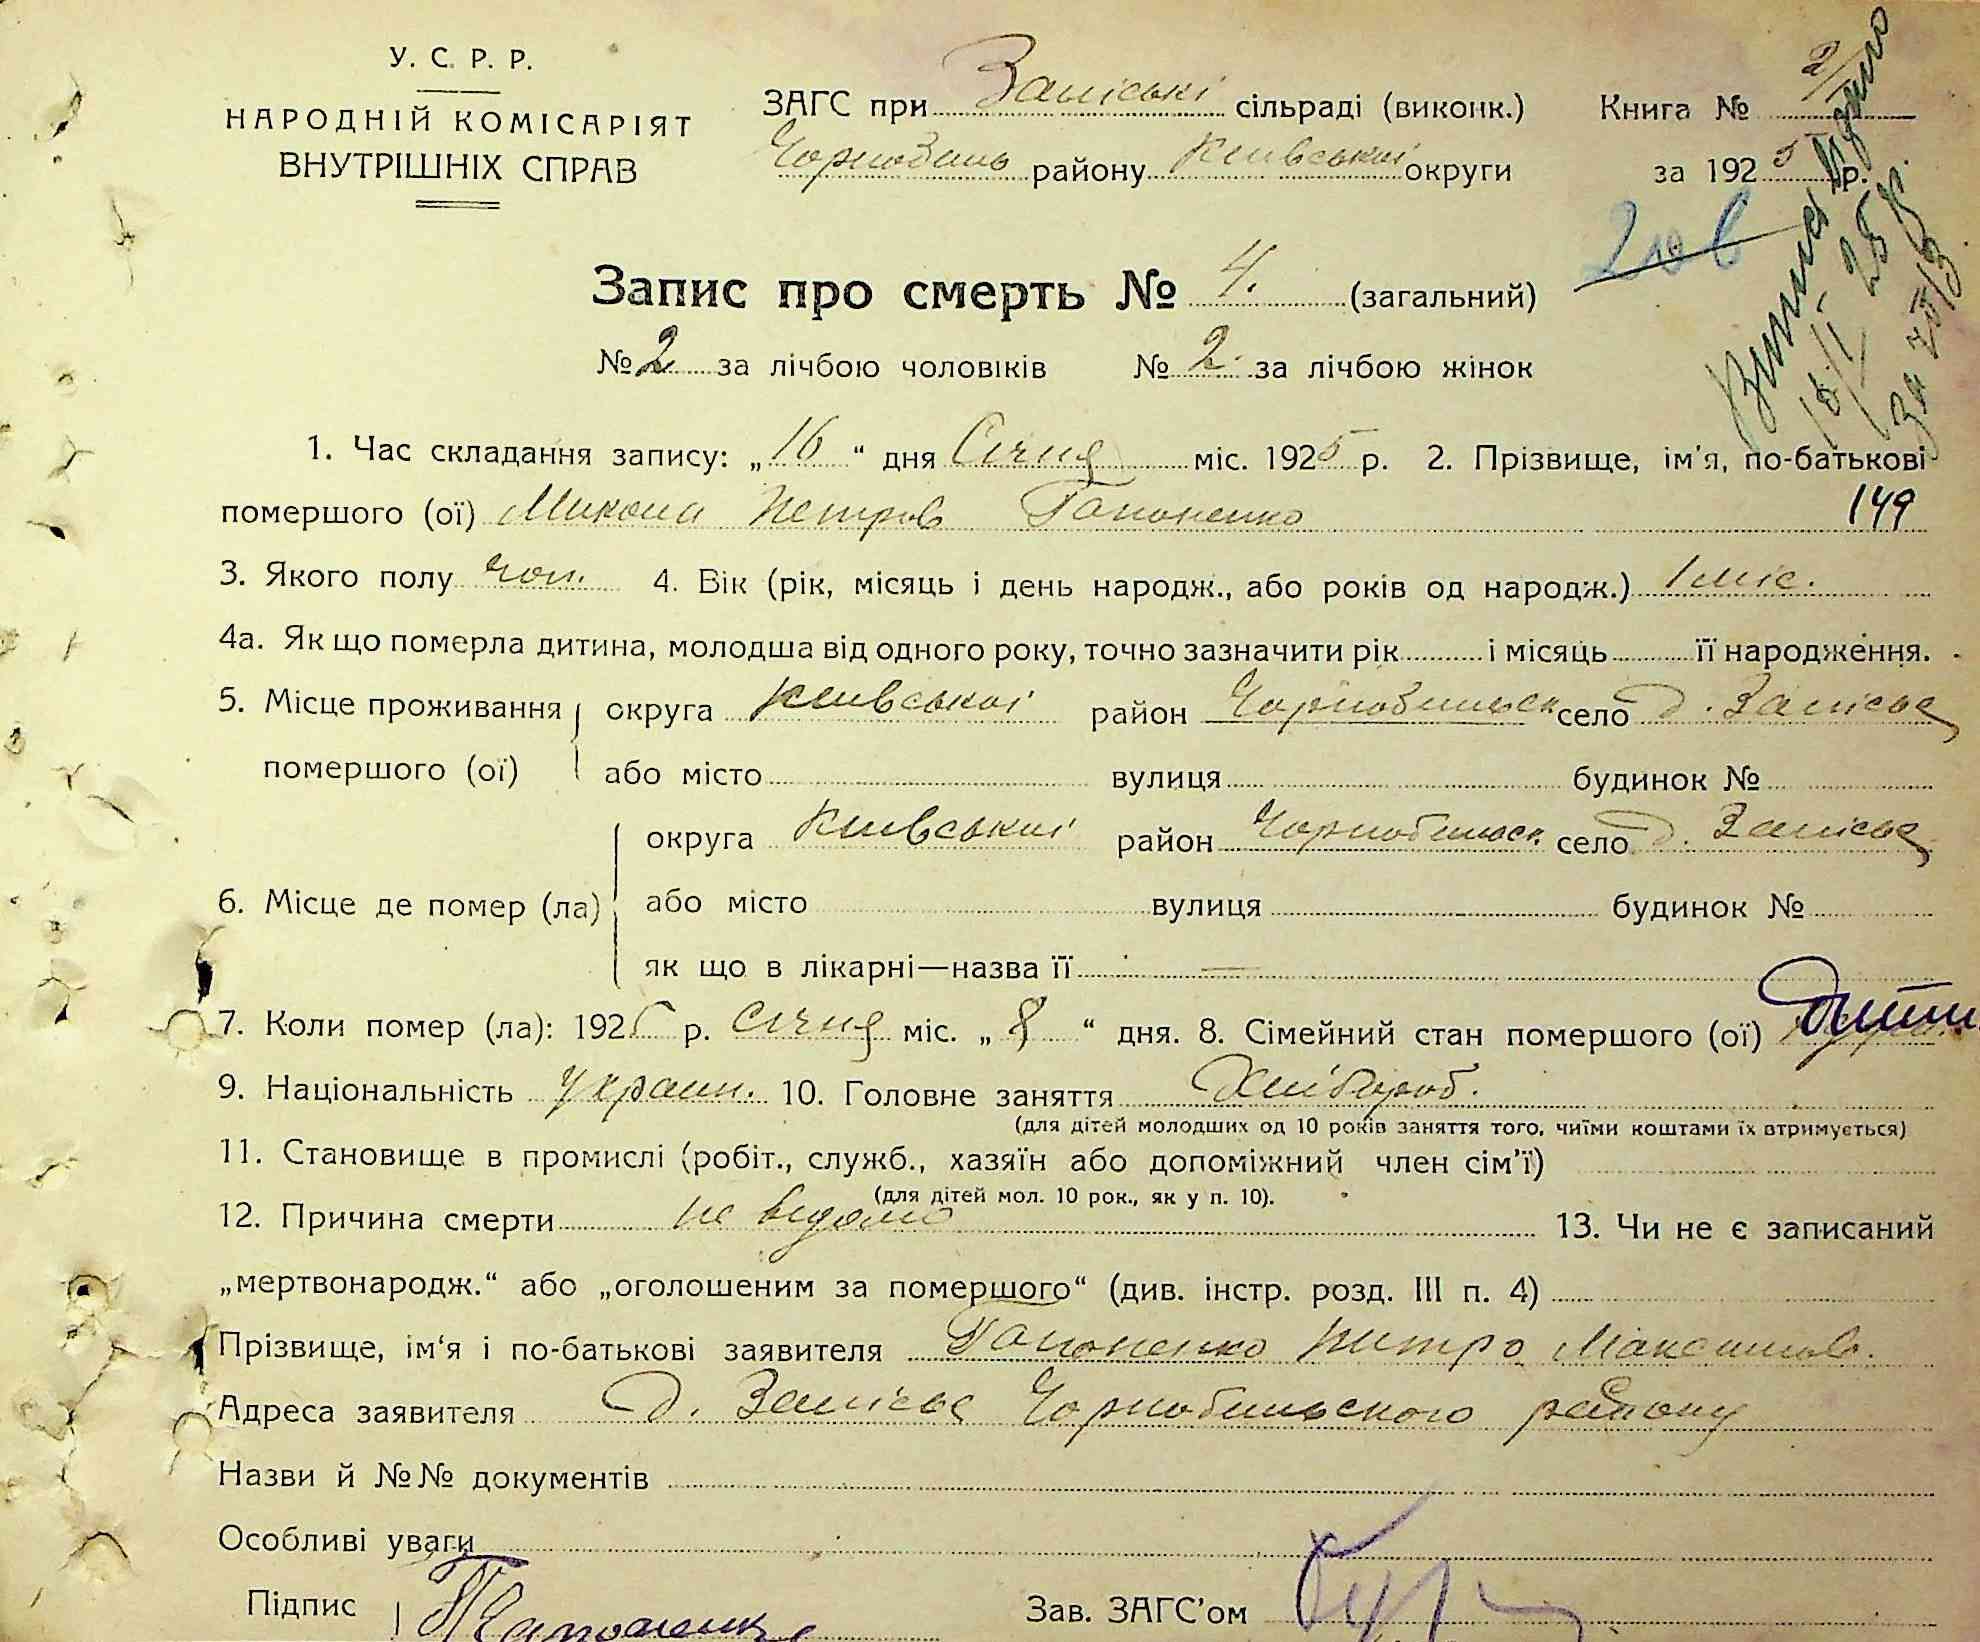 У. С. Р. Р.
НАРОДНІЙ КОМІСАРІЯТ
ВНУТРІШНІХ СПРАВ
ЗАГС при Заліські сільраді (виконк.)
Чорнобиль району Київської округи
Книга № 2/
за 1925 р.
Випис видано
18/I 25 р.
За №
Запис про смерть № 4. (загальний)
№ 2 за лічбою чоловіків № 2 за лічбою жінок
1. Час складання запису: „16“ дня Січня міс. 1925 р. 2. Прізвище, ім'я, по-батькові
помершого (ої) Микола Петров Гапоненко 149
3. Якого полу чол. 4. Вік (рік, місяць і день народж., або років од народж.) 1 міс.
4а. Як що померла дитина, молодша від одного року, точно зазначити рік і місяць її народження.
5. Місце проживання округа Київської район Чорнобильск село д. Залісьє
помершого (ої) або місто вулиця будинок №
округа Київської район Чорнобильск. село д. Залісьє
6. Місце де помер (ла) або місто вулиця будинок №
як що в лікарні—назва її —
7. Коли помер (ла): 1925 р. Січня міс. „8“ дня. 8. Сімейний стан помершого (ої)
9. Національність Україн. 10. Головне заняття Хлібороб.
(для дітей молодших од 10 років заняття того, чиїми коштами їх втримується)
11. Становище в промислі (робіт., служб., хазяїн або допоміжний член сім'ї)
(для дітей мол. 10 рок., як у п. 10).
12. Причина смерти не відомо 13. Чи не є записаний
„мертвонародж.“ або „оголошеним за помершого“ (див. інстр. розд. III п. 4)
Прізвище, ім'я і по-батькові заявителя Гапоненко Петро Максимов.
Адреса заявителя д. Залісьє Чорнобильского району
Назви й №№ документів
Особливі уваги
Підпис Гапоненко
Зав. ЗАГС'ом